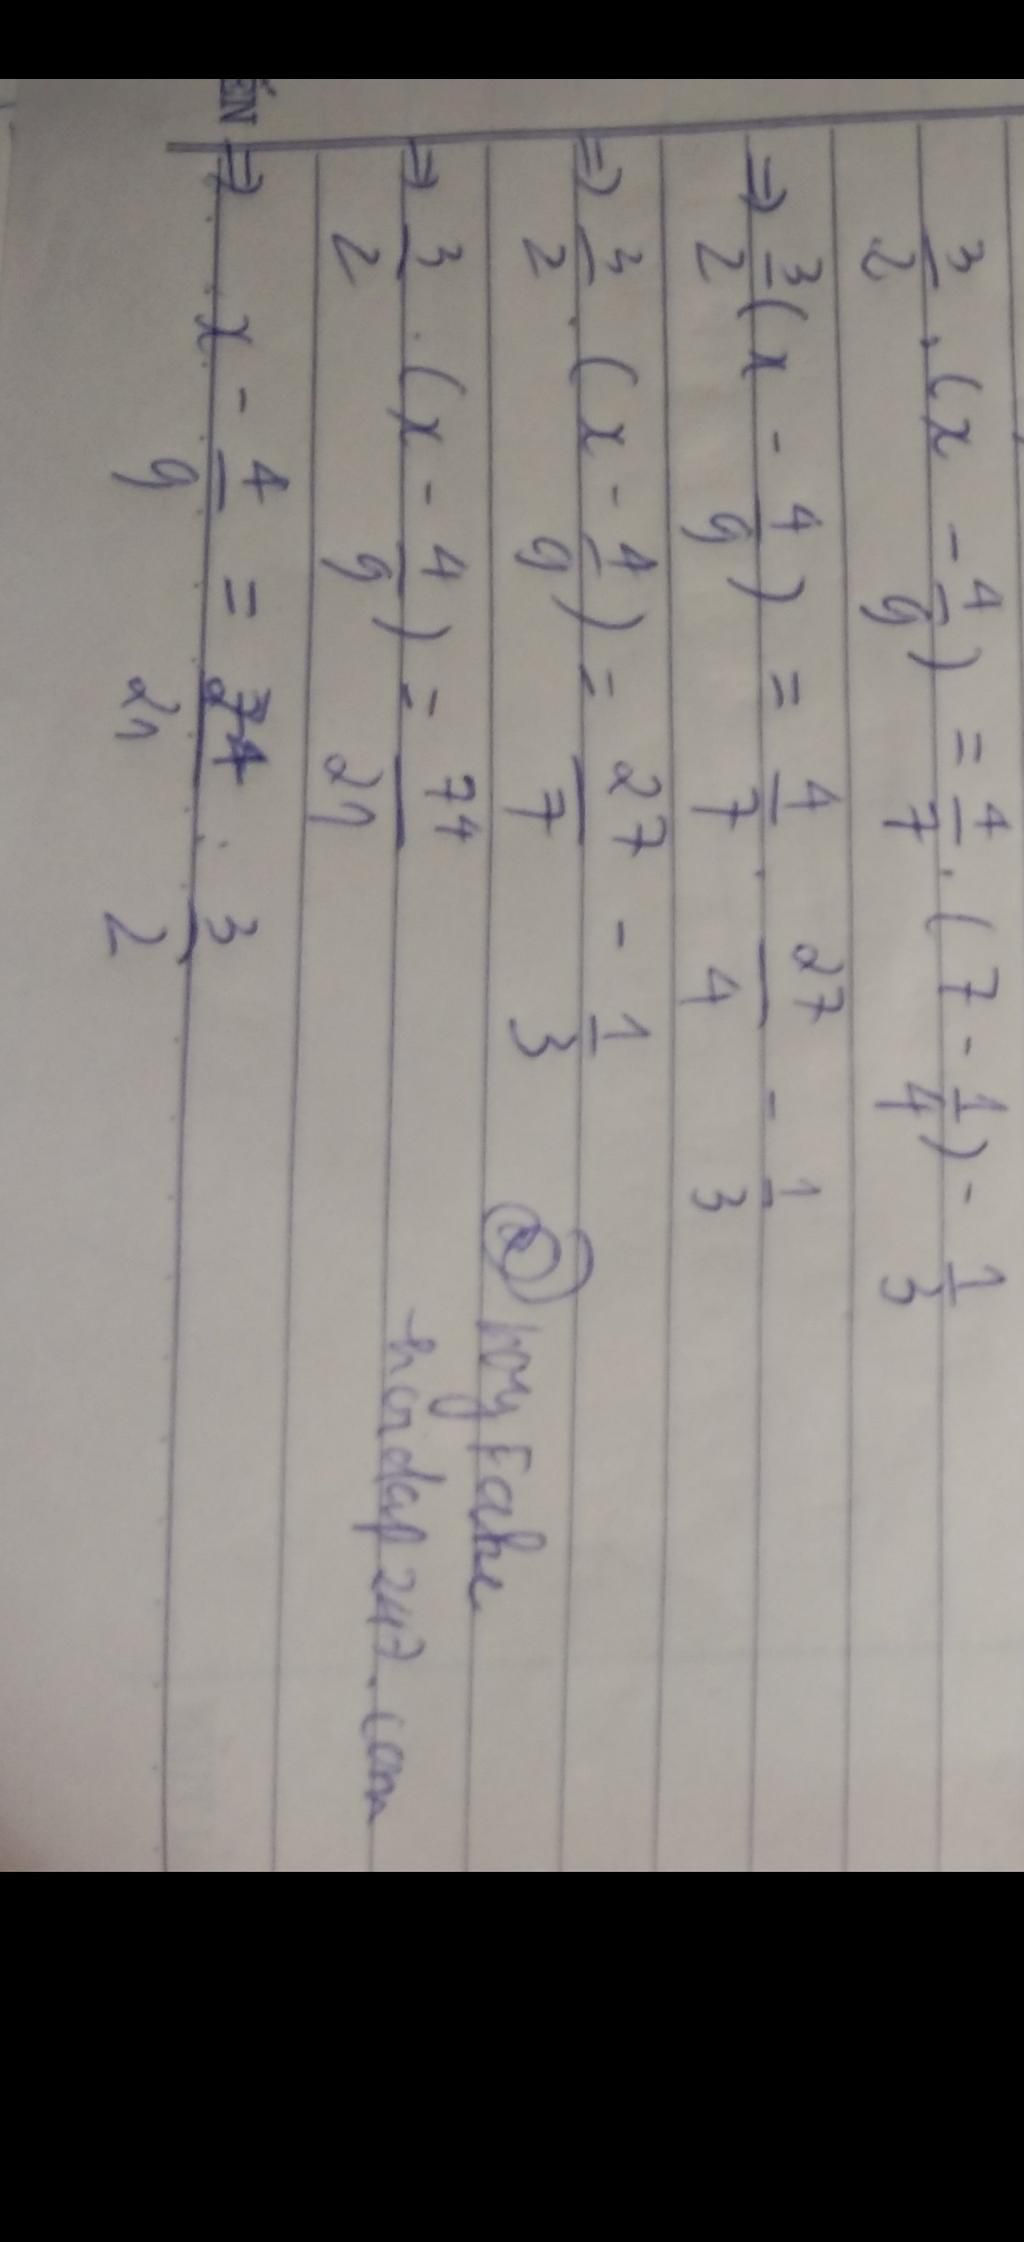 ẾN
3/2 . (x - 4/9) = 4/7 . (7 - 1/4) - 1/3
=> 3/2 (x - 4/9) = 4/7 . 27/4 - 1/3
=> 3/2 . (x - 4/9) = 27/7 - 1/3
=> 3/2 . (x - 4/9) = 74/21
=> x - 4/9 = 74/21 . 3/2
hoidap247.com